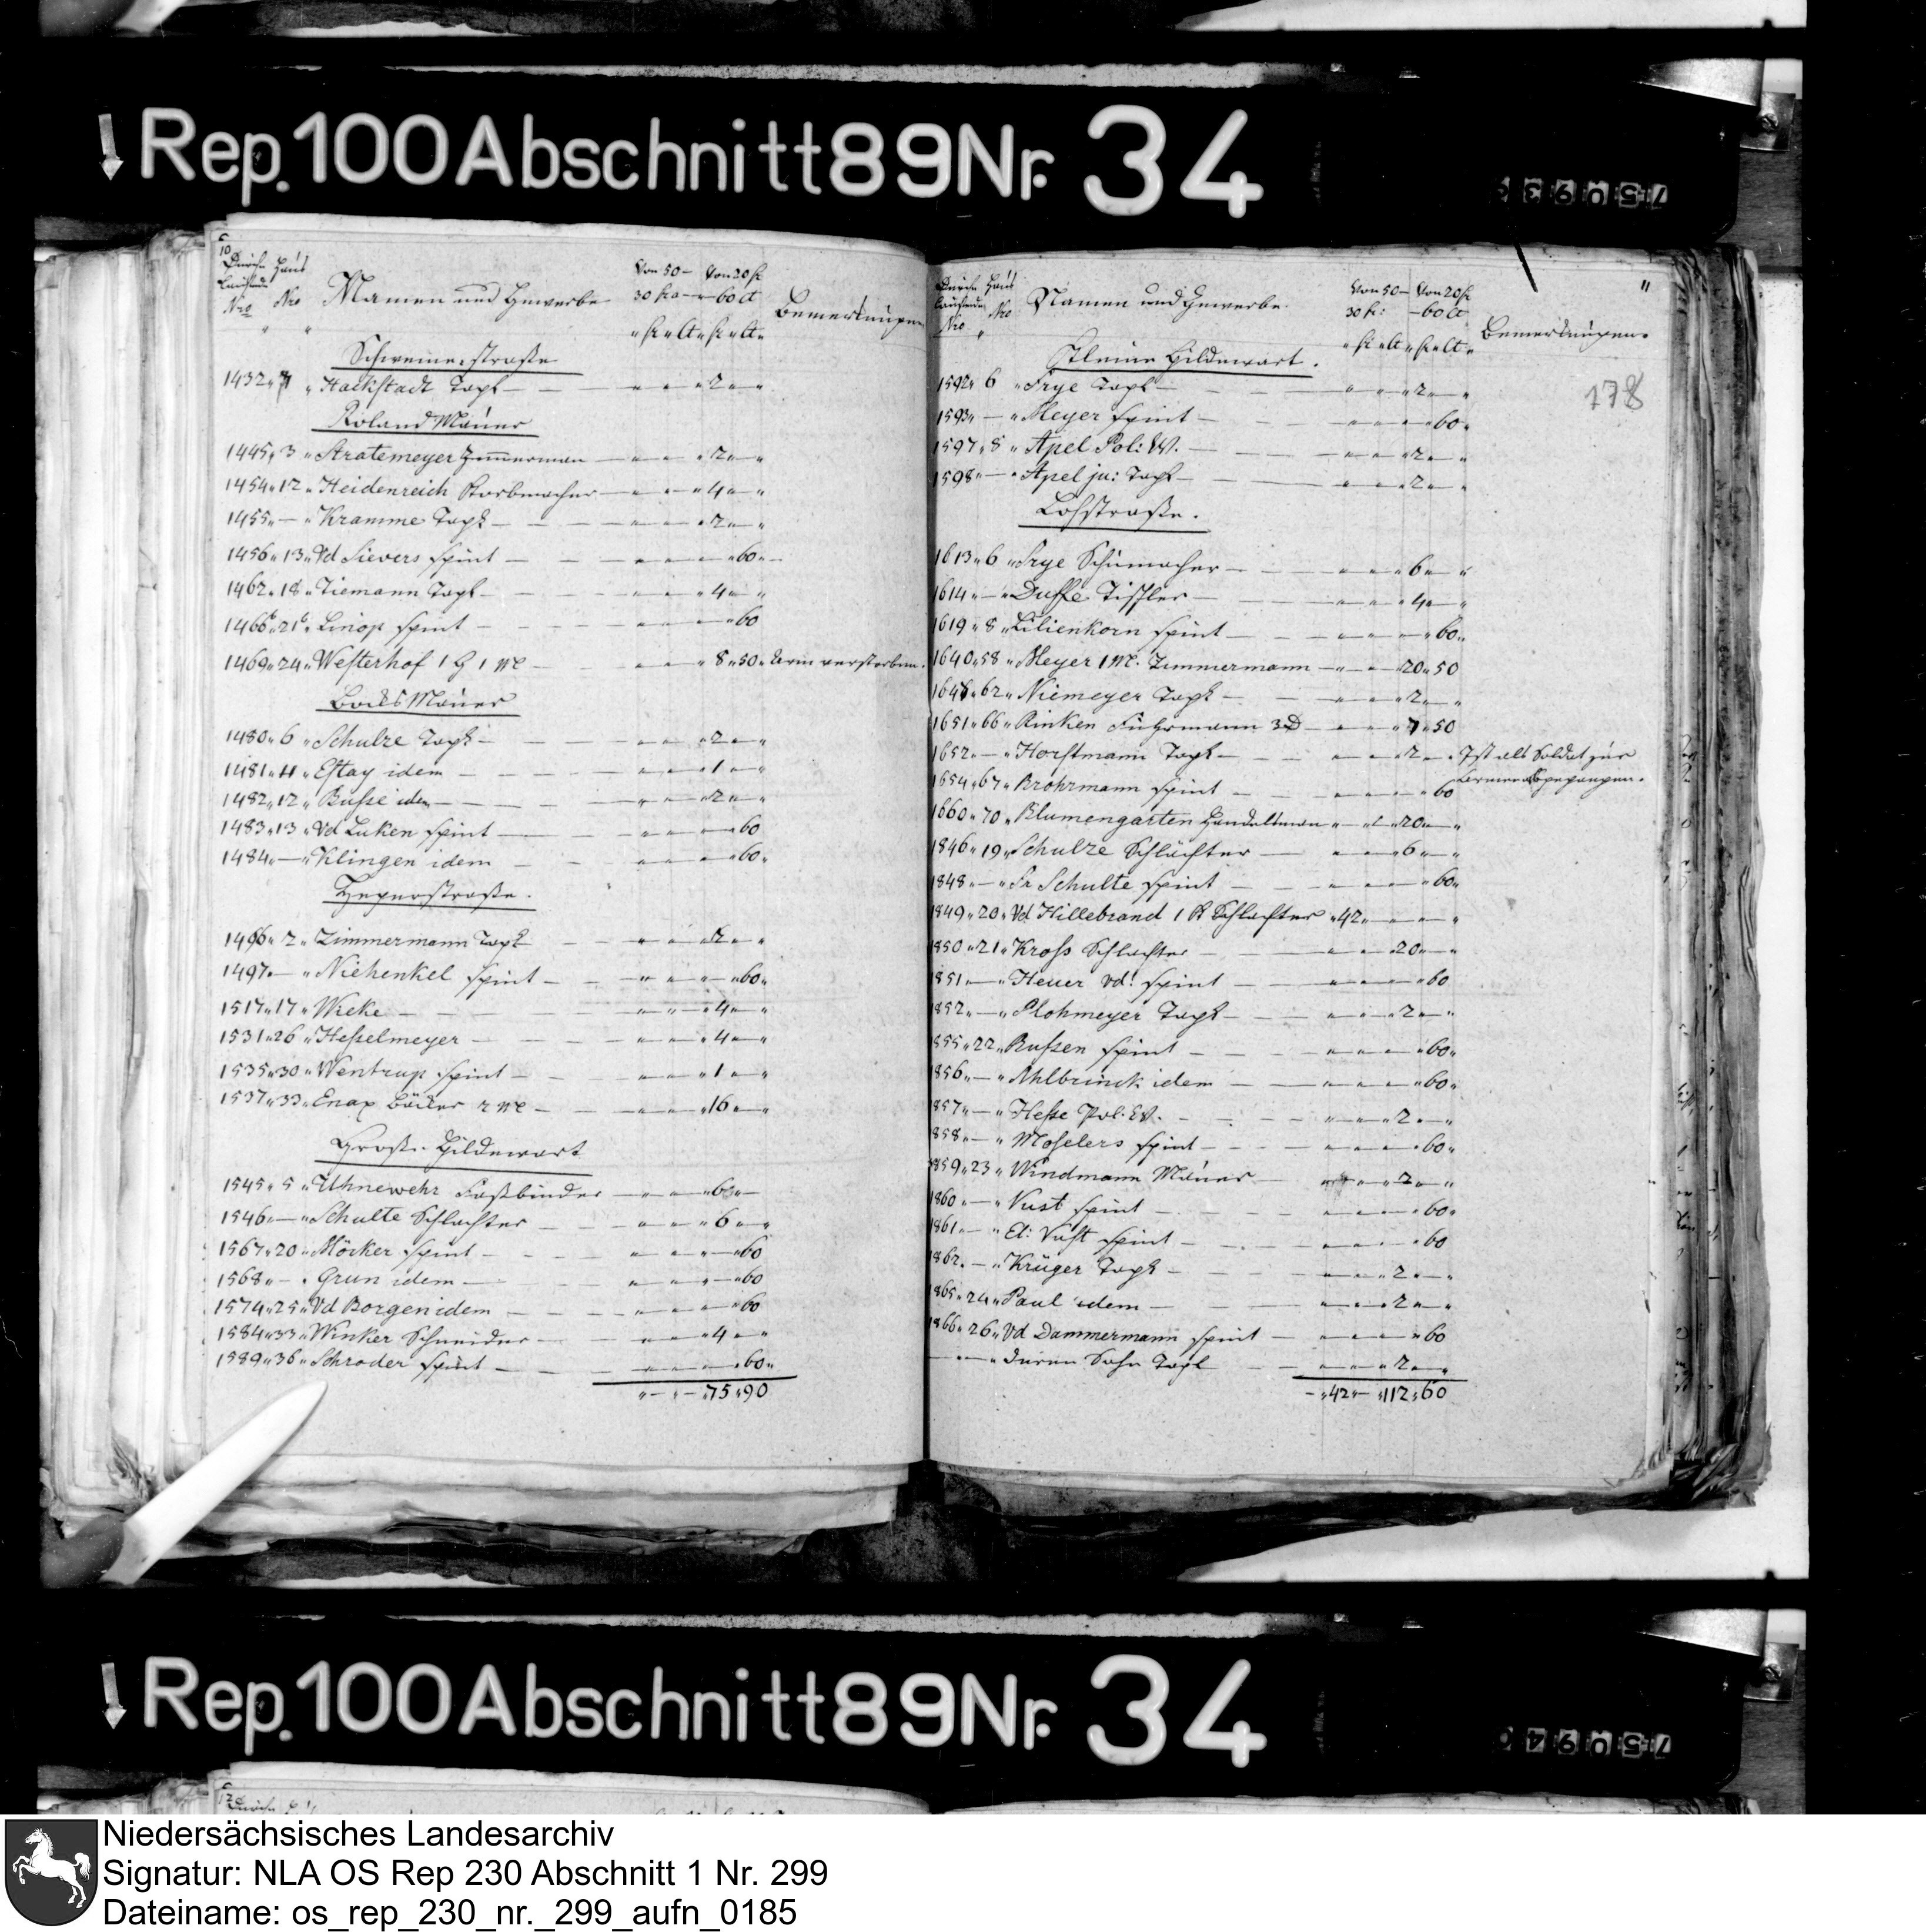 Rep. 100 Abschnitt 89 Nr. 34
10
Haus
Nro Nro Namen und Gewerbe
Von 50– Von 20 fr
30 fr – 60 ct
Bemerkungen
fr ct fr ct
Schweinestraße
1432 Hackstadt Tagl – 2
Roland Mauer
1445 3 Stratemeyer Zimmerman – 2
1454 12 Heidenreich Korbmacher – 4
1455 – Kramme Tagl – 2
1456 13 Vd Sievers spint – 60
1462 18 Tiemann Tagl – 4
1466b 21b Linop spint – 60
1469 24 Westerhof 1 G 1 M – 8 50 verstorben
Bocks Mauer
1480 6 Schulze Tagl – 2
1481 11 Estay idem – 1
1482 12 Busse idem – 2
1483 13 Vd Luken spint – 60
1484 – Klingen idem – 60
Hegerstraße.
1496 2 Zimmermann Tagl – 2
1497 – Niehenkel spint – 60
1517 17 Wieke – 4
1531 26 Hesselmeyer – 4
1535 30 Wentrup spint – 1
1537 33 Enax 2 M – 16
Große Hildewart
1545 5 Uhnewehr Faßbinder – 6
1546 – Schulte Schlachter – 6
1567 20 Möcker spint – 60
1568 – Grun idem – 60
1574 25 Vd Borgen idem – 60
1584 33 Winker Schneider – 4
1589 36 Schroder spint – 60
75 90
11
Haus
Nro Nro Namen und Gewerbe
Von 50– Von 20 fr
30 fr: – 60 ct
Bemerkungen.
fr ct fr ct
178
Kleine Hildewart.
1592 6 Frye Tagl – 2
1593 – Meyer spint – 60
1597 8 Apel Pol: W. – 2
1598 – Apel ju: Tagl – 2
Lohstraße.
1613 6 Frye Schumacher – 6
1614 – Duffe Tischler – 4
1619 8 Lilienkorn spint – 60
1640 58 Meyer 1 M. Zimmermann – 20 50
1646 62 Niemeyer Tagl – 2
1651 66 Rinken Fuhrmann 3 D – 7 50
1652 – Horstmann Tagl – 2 Ist als Soldat zur
Armee abgegangen.
1654 67 Brohrmann spint – 60
1660 70 Blumengarten Handelsman – 20
1846 19 Schulze Schlachter – 6
1848 – Fr Schulte spint – 60
1849 20 Vd Hillebrand 1 K Schlachter 42
1850 21 Kross Schlachter – 20
1851 – Heuer Vd: spint – 60
1852 – Plohmeyer Tagl – 2
1855 22 Bussen spint – 60
1856 – Ahlbrinck idem – 60
1857 – Hesse Pol. W. – 2
1858 – Moselers spint – 60
1859 23 Windmann Maurer – 2
1860 – Vust spint – 60
1861 – El: Vust spint – 60
1862 – Krüger Tagl – 2
1865 24 Paul idem – 2
1866 26 Vd Dammermann spint – 60
– deren Sohn Tagl – 2
42 112 60
Rep. 100 Abschnitt 89 Nr. 34
Niedersächsisches Landesarchiv
Signatur: NLA OS Rep 230 Abschnitt 1 Nr. 299
Dateiname: os_rep_230_nr._299_aufn_0185